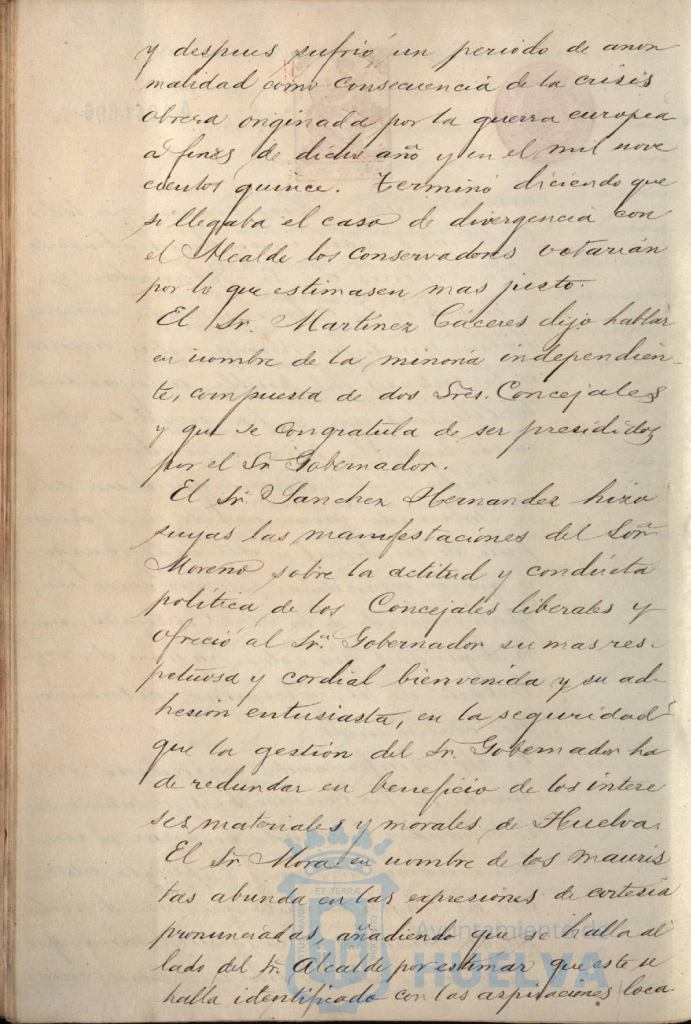 y despues sufrió un periodo de anor
malidad como consecuencia de la crisis
obrera originada por la guerra europea
a fines de dicho año y en el mil nove
cientos quince. Terminó diciendo que
si llegaba el caso de divergencia con
el Alcalde los conservadores votarián
por lo que estimasen mas justo.
El Sr. Martínez Cáceres dijo hablar
en nombre de la minoria independien-
te, compuesta de dos Sres. Concejales
y que se congratula de ser presididos
por el Sr. Gobernador.
El Sr. Sanchez Hernandez hizo
suyas las manifestaciones del Soñr
Moreno sobre la actitud y conducta
política de los Concejales liberales y
ofreció al Sr. Gobernador su mas res-
petuosa y cordial bienvenida y su ad-
hesión entusiasta, en la seguridad
que la gestión del Sr. Gobernador ha
de redundar en beneficio de los intere
ses materiales y morales de Huelva.
El Sr. Mora en nombre de los mauris
tas abunda en las expresiones de cortesia
pronunciadas, añadiendo que se halla al
lado del Sr. Alcalde por estimar que este se
halla identificado con las aspiraciones loca
ET TERRAE
Ayuntamiento de
HUELVA